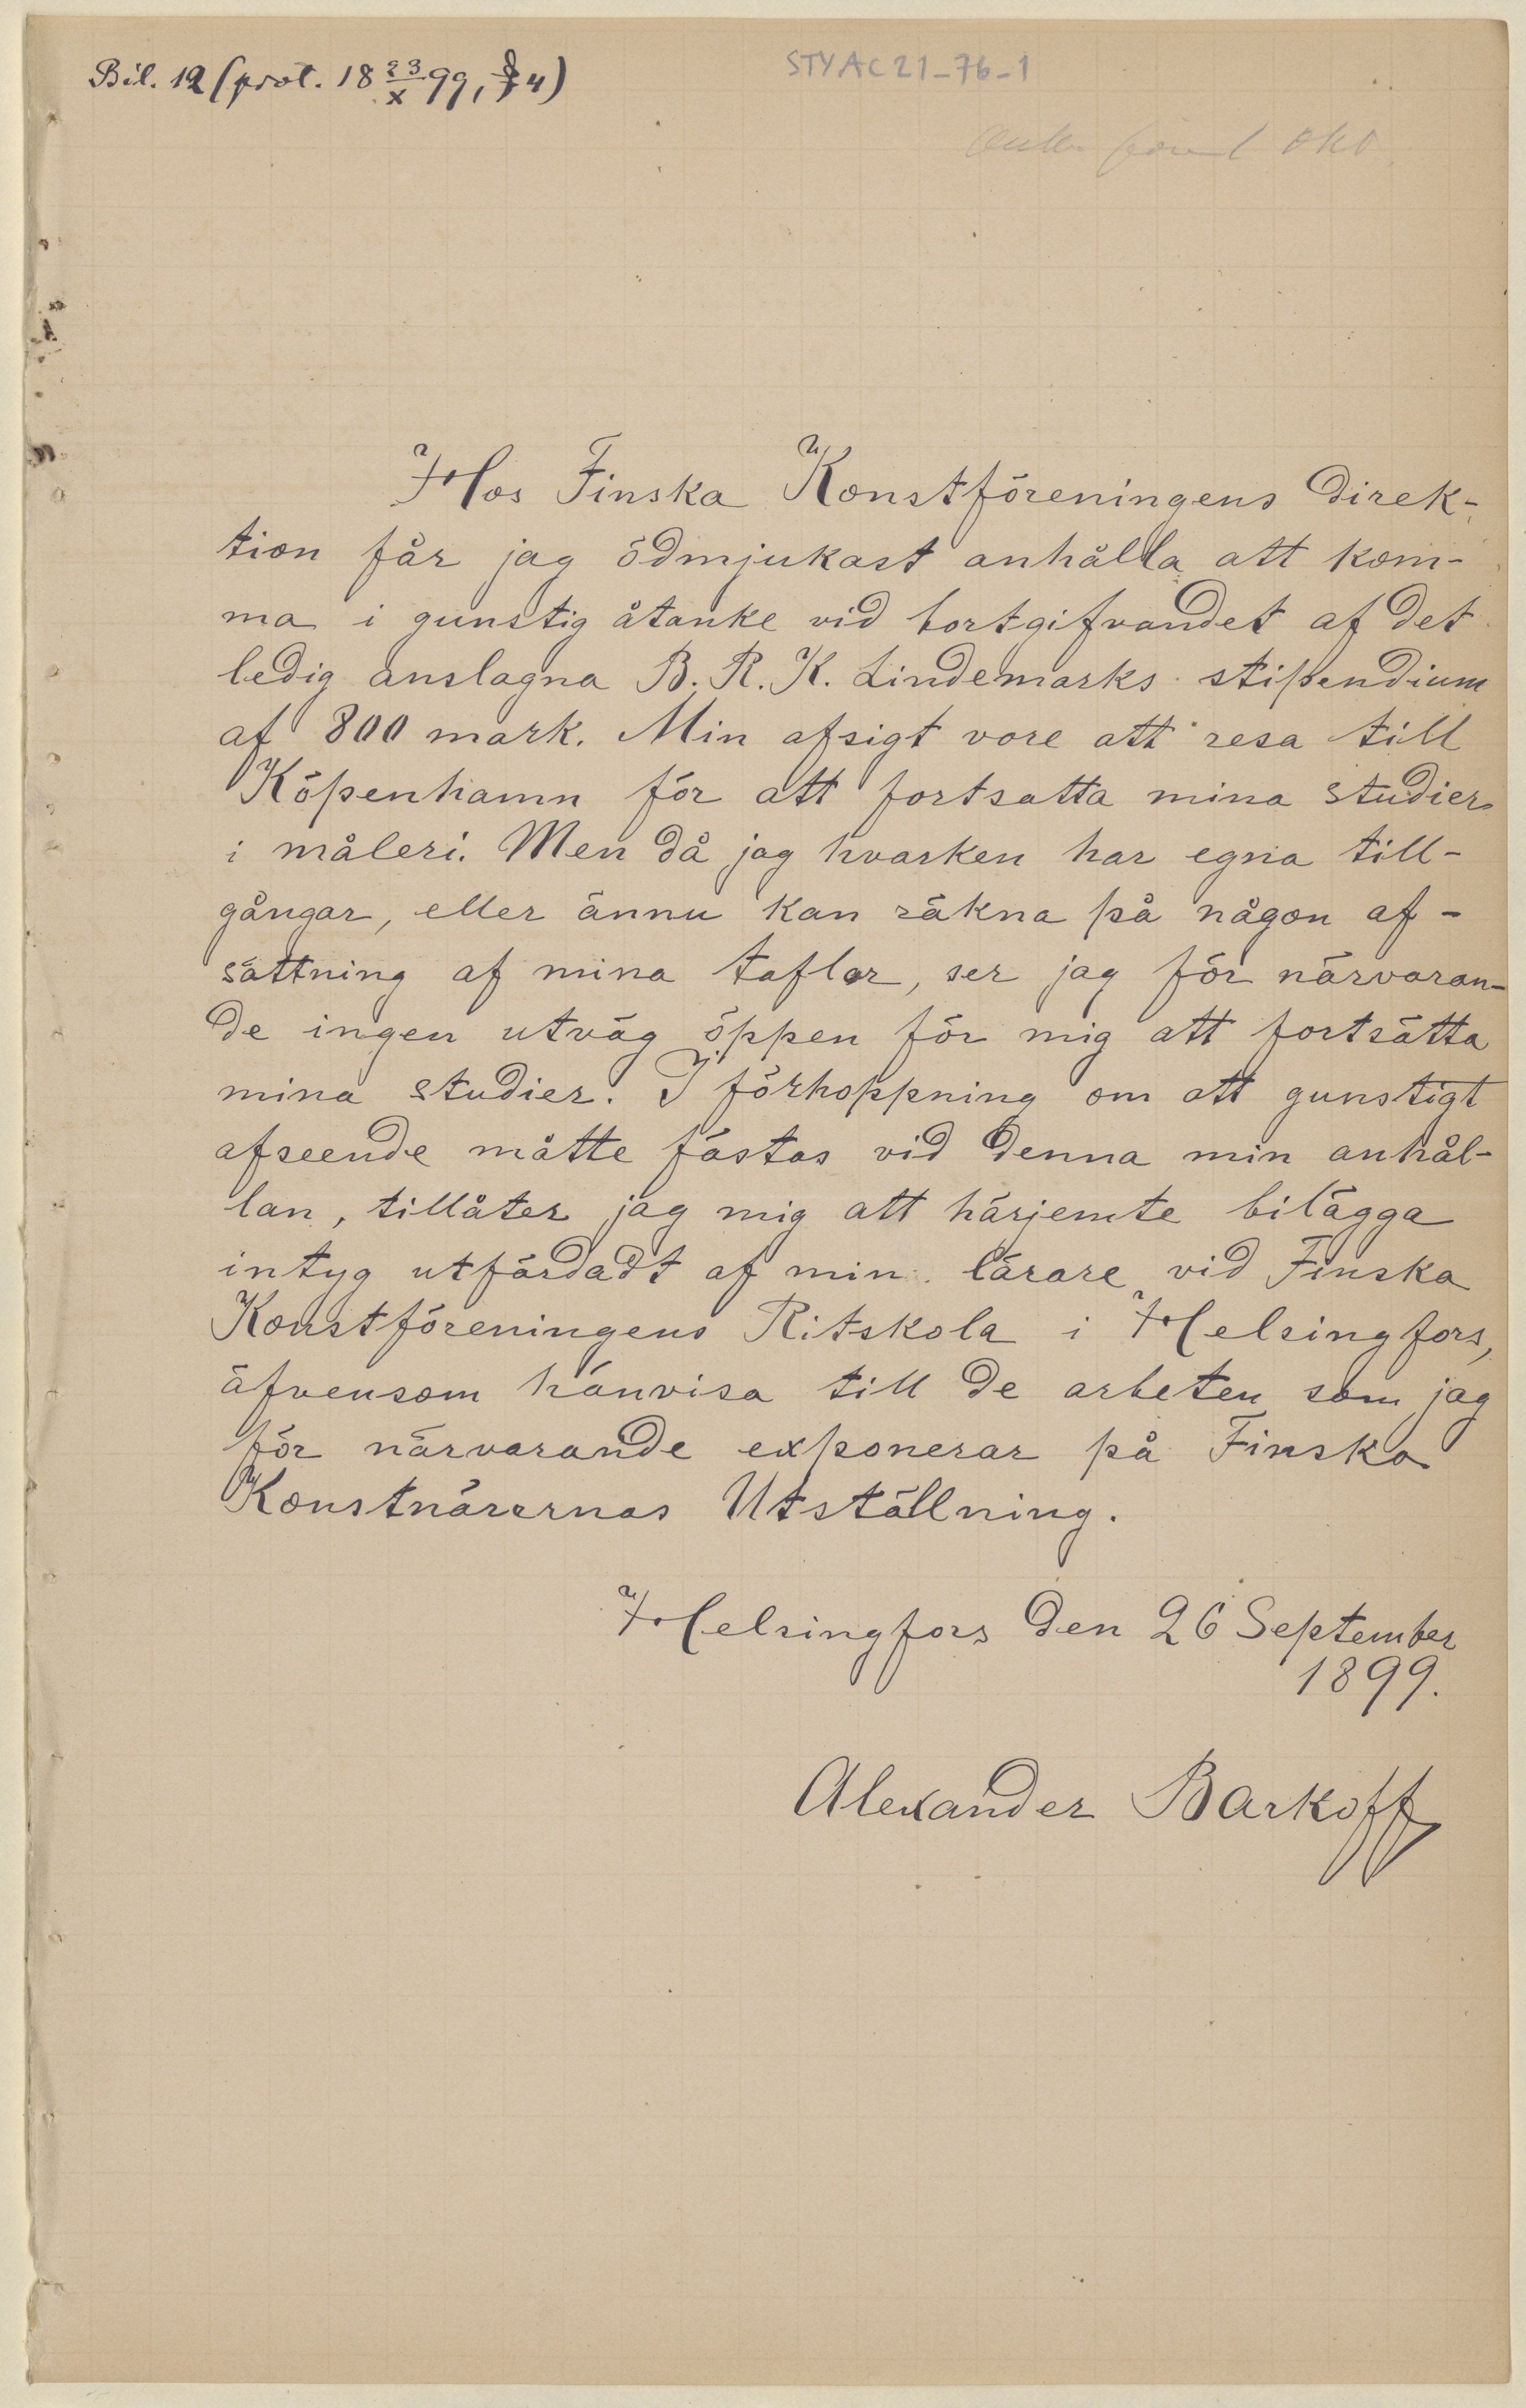 Bil. 12 (prot. 18 23/X 99, § 4)
STYAC21-76-1
Hos Finska Konstföreningens Direk-
tion får jag ödmjukast anhålla att kom-
ma i gunstig åtanke vid bortgifvandet af det
ledig anslagna B. R. K. Lindemarks stipendium
af 800 mark. Min afsigt vore att resa till
Köpenhamn för att fortsatta mina studier
i måleri. Men då jag hvarken har egna till-
gångar, eller ännu kan räkna på någon af-
sättning af mina taflor, ser jag för närvaran-
de ingen utväg öppen för mig att fortsätta
mina studier. I förhoppning om att gunstigt
afseende måtte fästas vid denna min anhål-
lan, tillåter jag mig att härjemte bilägga
intyg utfärdadt af min lärare vid Finska
Konstföreningens Ritskola i Helsingfors,
äfvensom hänvisa till de arbeten som jag
för närvarande exponerar på Finska
Konstnärernas Utställning.
Helsingfors den 26 September
1899.
Alexander Barkoff